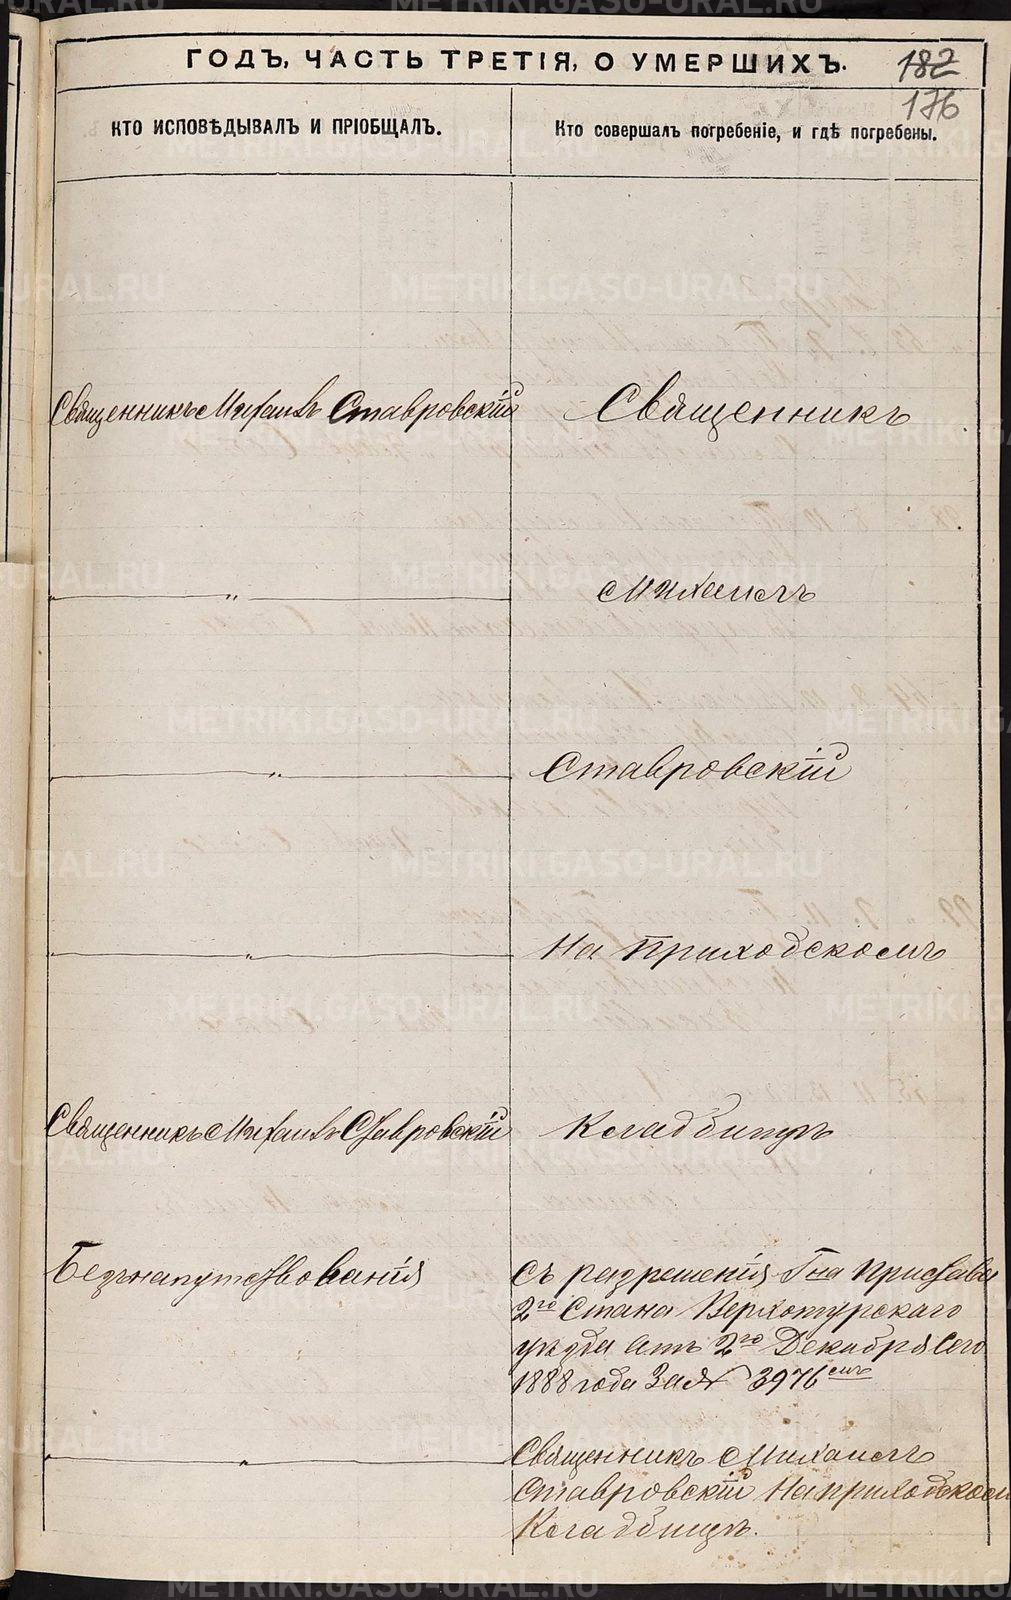 ГОДЪ, ЧАСТЬ ТРЕТІЯ, О УМЕРШИХЪ.
182
176
КТО ИСПОВѢДЫВАЛЪ И ПРІОБЩАЛЪ.
Кто совершалъ погребеніе, и гдѣ погребены.
Священникъ Михаилъ Ставровскій
Священникъ
"
Михаилъ
"
Ставровскій
"
На приходскомъ
Священникъ Михаилъ Ставровскій
Кладбищѣ
Безънапутствованія
Съ разрешенія Гна Пристава
2го Стана Верхотурскаго
уѣзда отъ 2го Декабря Сего
1888 года За № 3976мъ
"
Священникъ Михаилъ
Ставровскій На приходском
Кладбищѣ.
METRIKI.GASO-URAL.RU